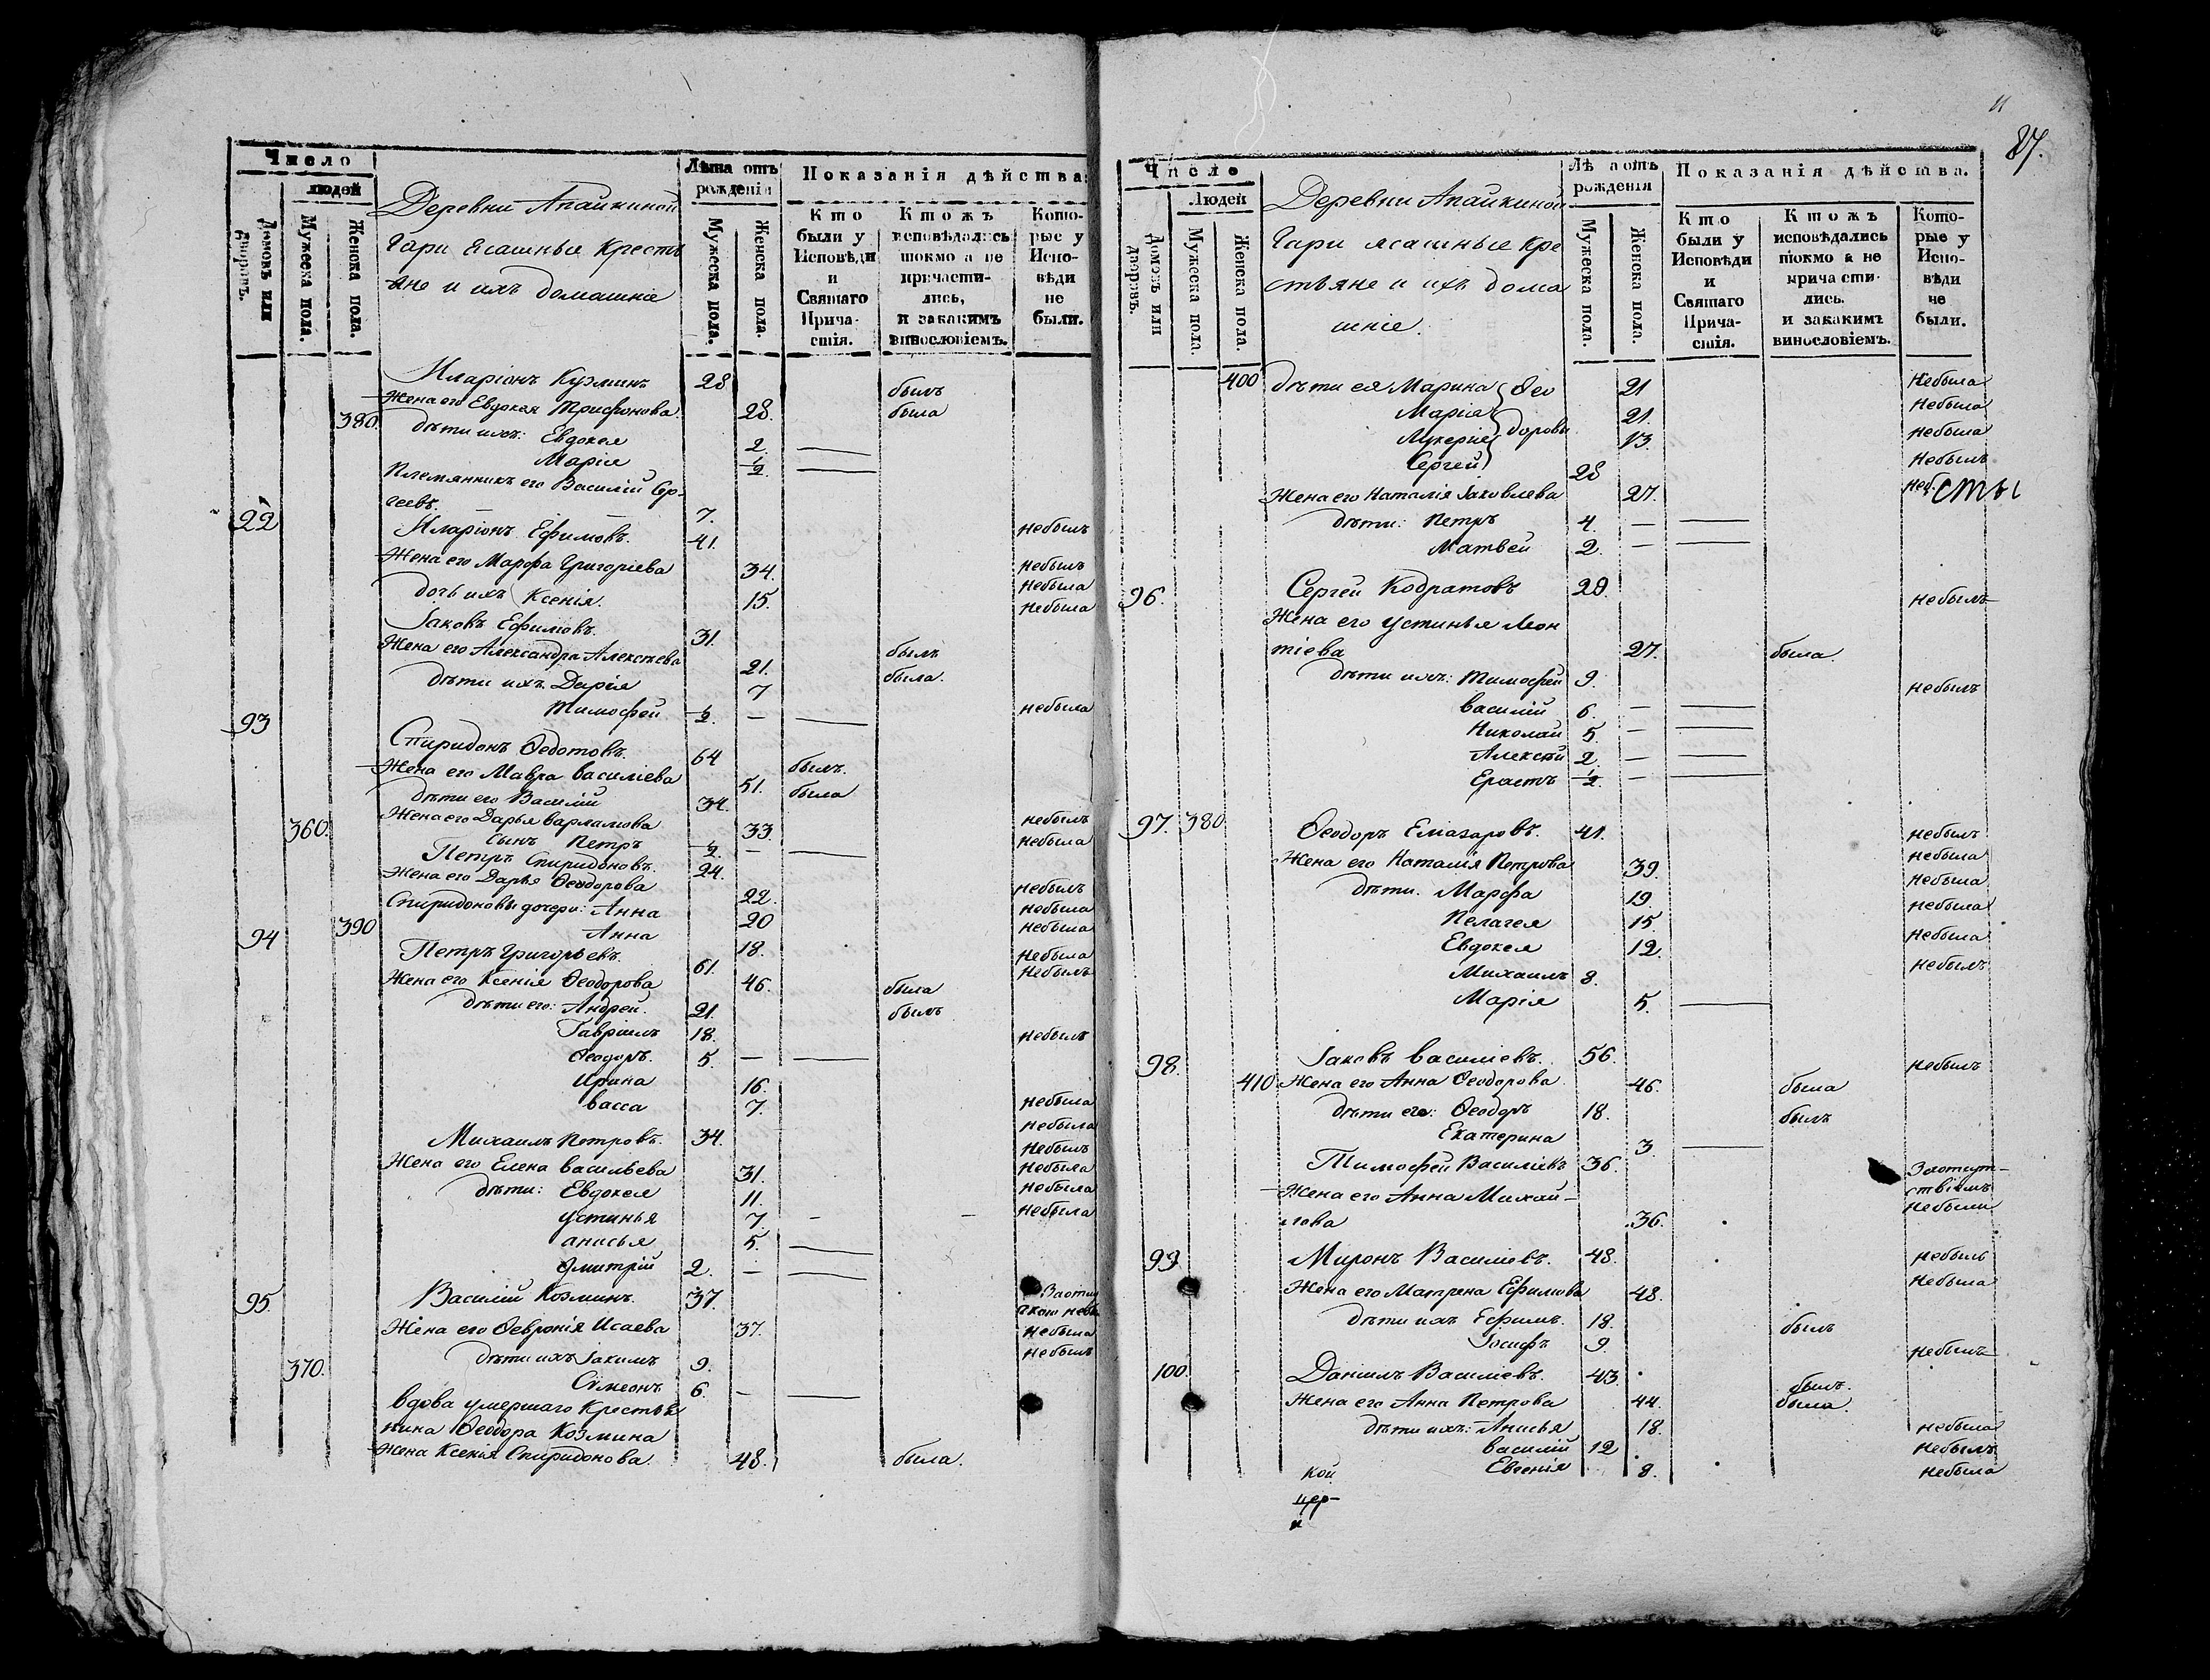 Число
людей
Домовъ или дворовъ.
Мужеска пола.
Женска пола.
Деревни Апайкиной
Гари Ясашныя Кресть
яне и ихъ домашніе
Лѣта отъ рожденія
Мужеска пола.
Женска пола.
Показанія дѣйства.
Кто были у Исповѣди и Святаго Прича-стія.
Ктожъ исповѣдались токмо а не причасти-лись, и закакимъ винословіемъ.
Кото-рые у Испо-вѣди не были.
Иларіонъ Кузминъ 28 былъ
Жена его Евдокея Трифонова. 28. была
380. дѣти ихъ: Евдокея 2. —
Марія ½ —
Племянникъ его Василій Сер-
геевъ. 7.
22 Иларіонъ Ефимовъ. 41. небылъ
Жена его Марфа Григоріева 34. небылъ
дочь ихъ Ксенія. 15. небыла
небыла
Іаковъ Ефимовъ. 31.
Жена его Александра Алексѣева 21. былъ
дѣти ихъ Дарія 7 была.
Тимофей ½. — — небыла
93
Спиридонъ Ѳедотовъ. 64 былъ.
Жена его Мавра Василіева 51. была
дѣти его Василій 34.
360. Жена его Дарья Варламова 33 небылъ
сынъ Петръ ½. — — небыла
Петръ Спиридоновъ. 24.
Жена его Дарья Ѳеодорова 22. небылъ
Спиридоновы дочери: Анна 20 небыла
94 390 Анна 18. небыла
Петръ Григорьевъ. 61. небыла
Жена его Ксенія Ѳеодорова 46. была небылъ
дѣти его: Андрей. 21. былъ
Гавріилъ 18. небылъ
Ѳеодоръ. 5. — —
Ирина 16.
Васса 7. небыла
небыла
Михаилъ Петровъ. 34. небылъ
Жена его Елена Васильева 31. небыла
дѣти: Евдокея 11. небыла
Устинья 7. — — небыла
Анисья 5. —
Дмитрій 2. — —
95. Василій Козминъ. 37.
Жена его Ѳевронія Исаева 37. небыла
370. дѣти ихъ Іакимъ 9. небылъ
Сѵмеонъ 6. — —
вдова умершаго Крестья
нина Ѳеодора Козмина
Жена Ксенія Спиридонова. 48. была.
11
87.
Число
Людей
Домовъ или дворовъ.
Мужеска пола.
Женска пола.
Деревни Апайкиной
Гари ясашныя Кре
стьяне и ихъ дома
шніе.
Лѣта отъ рожденія
Мужеска пола.
Женска пола.
Показанія дѣйства.
Кто были у Исповѣди и Святаго Прича-стія.
Ктожъ исповѣдались токмо а не прича сти-лись. и закакимъ винословіемъ.
Кото-рые у Испо-вѣди не были.
400 дѣти ея Марина Ѳео 21 Небыла
Марія 21. Небыла
Лукерія доровы 13. небыла
Сергей 28 Небылъ
Жена его Наталія Іаковлева 27. неб. сты
дѣти: Петръ 4. — —
Матвей 2. — —
96. Сергей Кодратовъ 29. небылъ
Жена его Устинья Леон
тіева 27. была.
дѣти ихъ: Тимофей 9. небылъ
Василій 6. — —
Николай 5. — —
Алексѣй 2. — —
Ерастъ ½. — —
97. 380 Ѳеодоръ Еліазаровъ. 41. небылъ
Жена его Наталія Петрова 39. небыла
дѣти. Марфа 19. небыла
Пелагея 15. небыла
Евдокея 12. небыла
Михаилъ 8. небылъ
Марія 5. —
98. Іаковъ Василіевъ. 56. небылъ
410 Жена его Анна Ѳеодорова 46. была
дѣти его: Ѳеодоръ 18. былъ
Екатерина 3. —
Тимофей Василіевъ 36. Заотсут-
Жена его Анна Михай- ствіемъ
лова 36. небыли
99. Миронъ Василіевъ. 48. небылъ
Жена его Матрена Ефимова 48. небыла
дѣти ихъ Ефимъ. 18. былъ
Іосифъ 9. небылъ
100. Даніилъ Василіевъ. 43. былъ.
Жена его Анна Петрова 44. была.
дѣти ихъ: Анисья 18. небыла
Василій 12 небылъ
Евгенія 8. небыла
кой
цер-
и